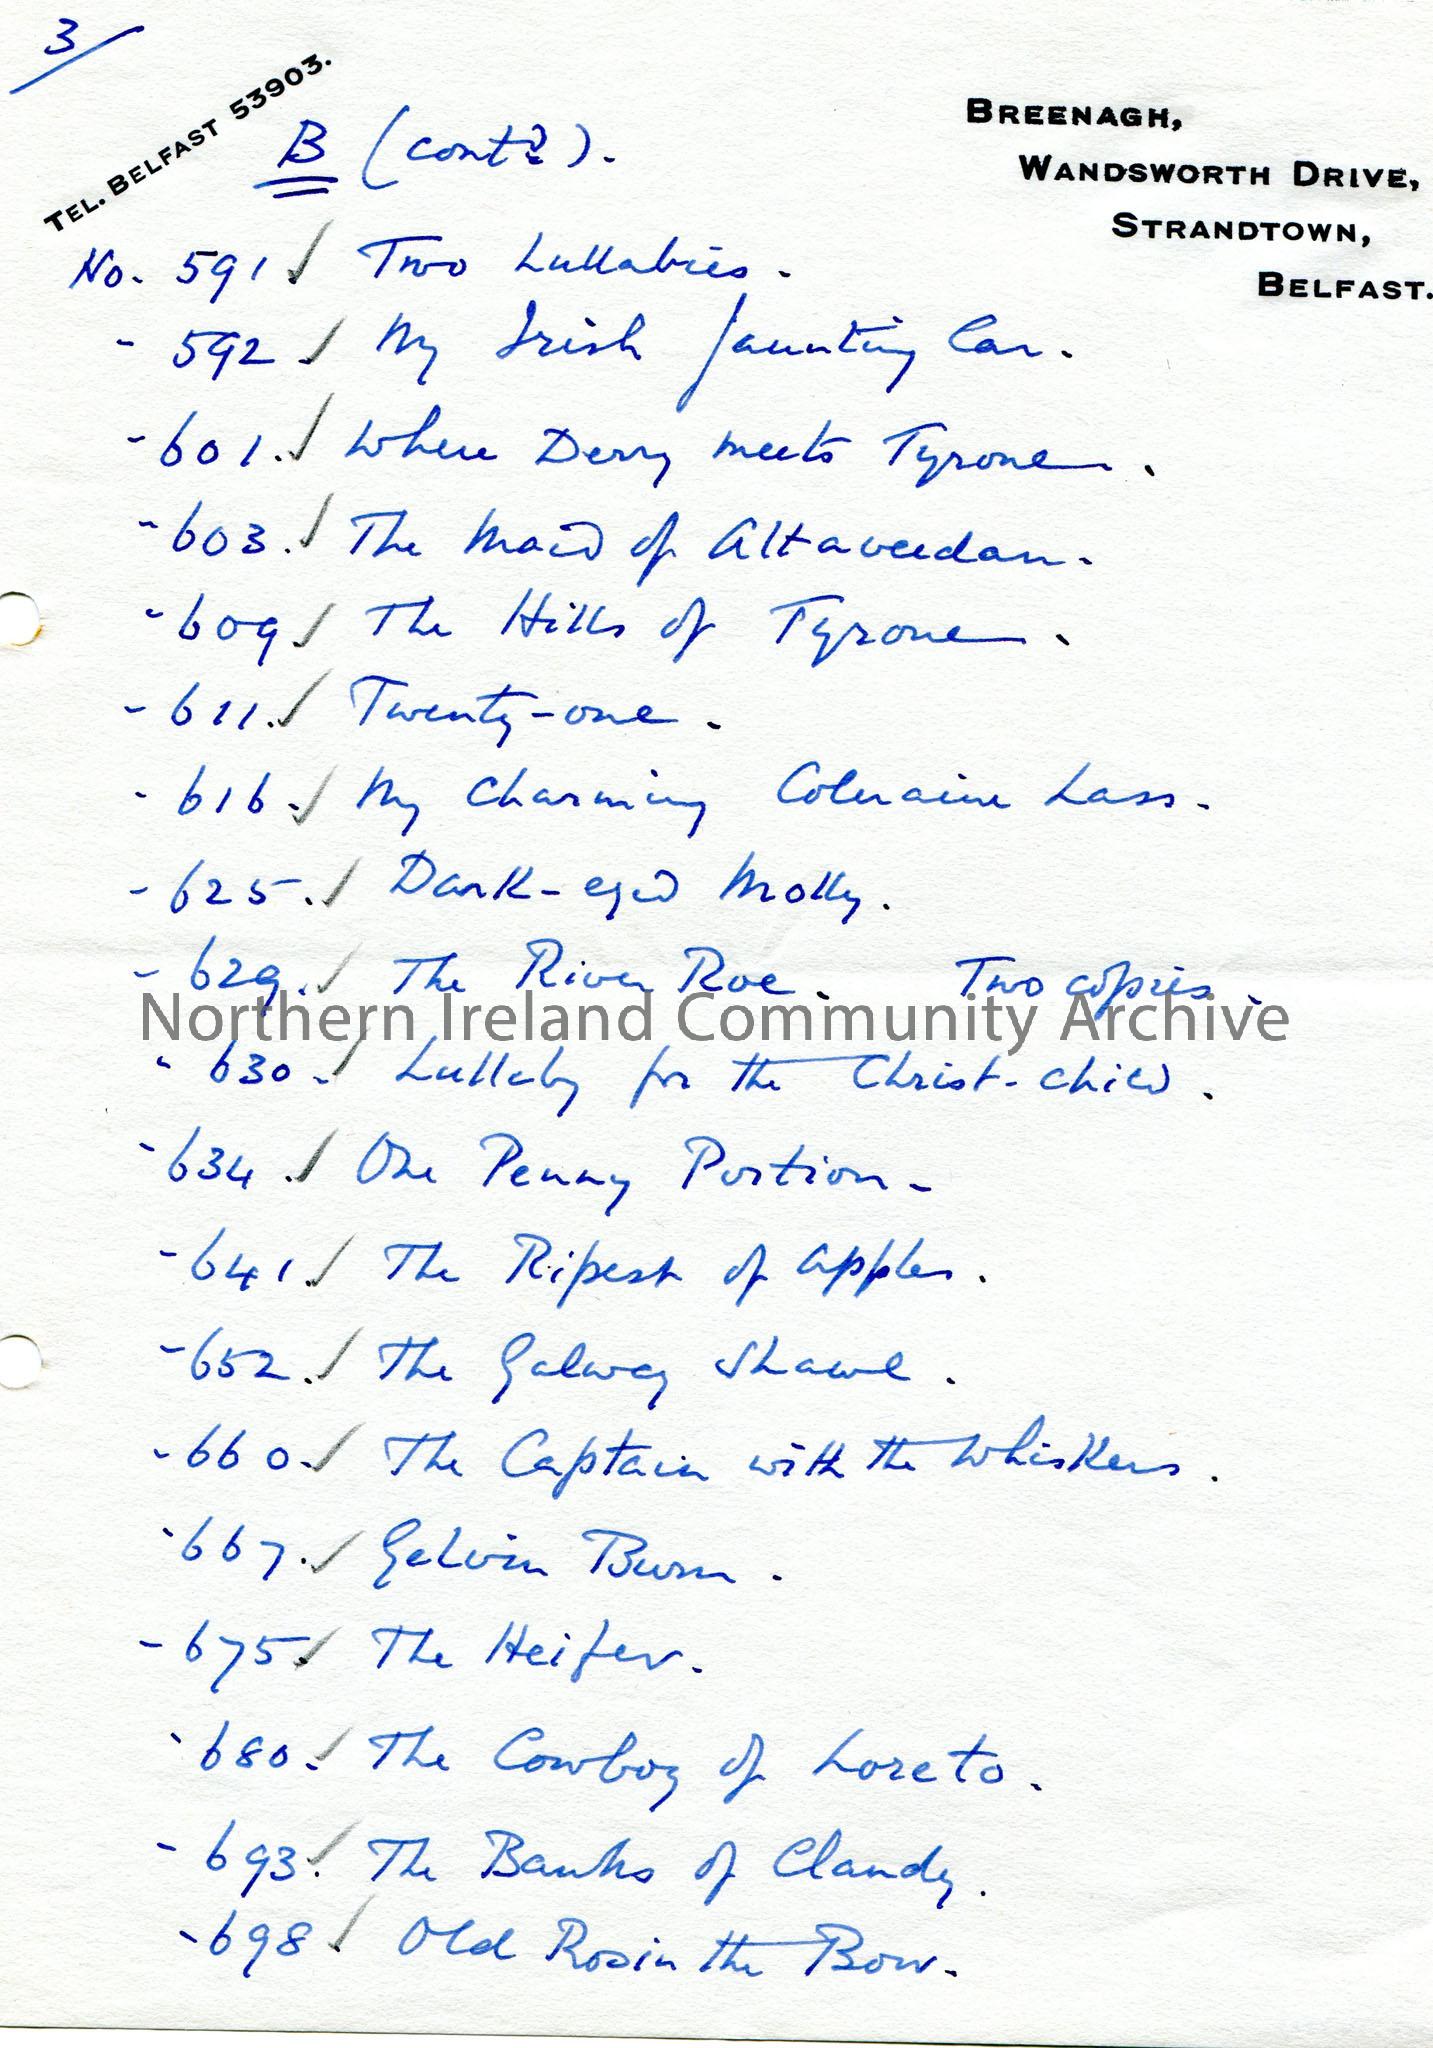 3/
TEL. BELFAST 53903.
BREENAGH,
WANDSWORTH DRIVE,
STRANDTOWN,
BELFAST.
B (contd).
No. 591 ✓ Two Lullabies.
- 592 ✓ My Irish Jaunting Car.
- 601. ✓ Where Derry meets Tyrone.
- 603. ✓ The Maid of Altaveedan.
- 609 ✓ The Hills of Tyrone.
- 611. ✓ Twenty-one.
- 616. ✓ My Charming Coleraine Lass.
- 625. ✓ Dark-eyed Molly.
- 629. ✓ The River Roe. Two copies.
Northern Ireland Community Archive
- 630. ✓ Lullaby for the Christ-child.
- 634. ✓ One Penny Portion.
- 641. ✓ The Ripest of Apples.
- 652. ✓ The Galway Shawl.
- 660. ✓ The Captain with the Whiskers.
- 667. ✓ Gelvin Burn.
- 675. ✓ The Heifer.
- 680. ✓ The Cowboy of Loreto.
- 693. ✓ The Banks of Claudy.
- 698. ✓ Old Rosin the Bow.